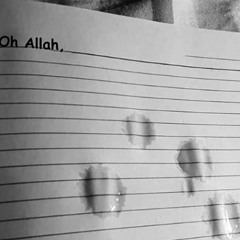 Oh Allah,